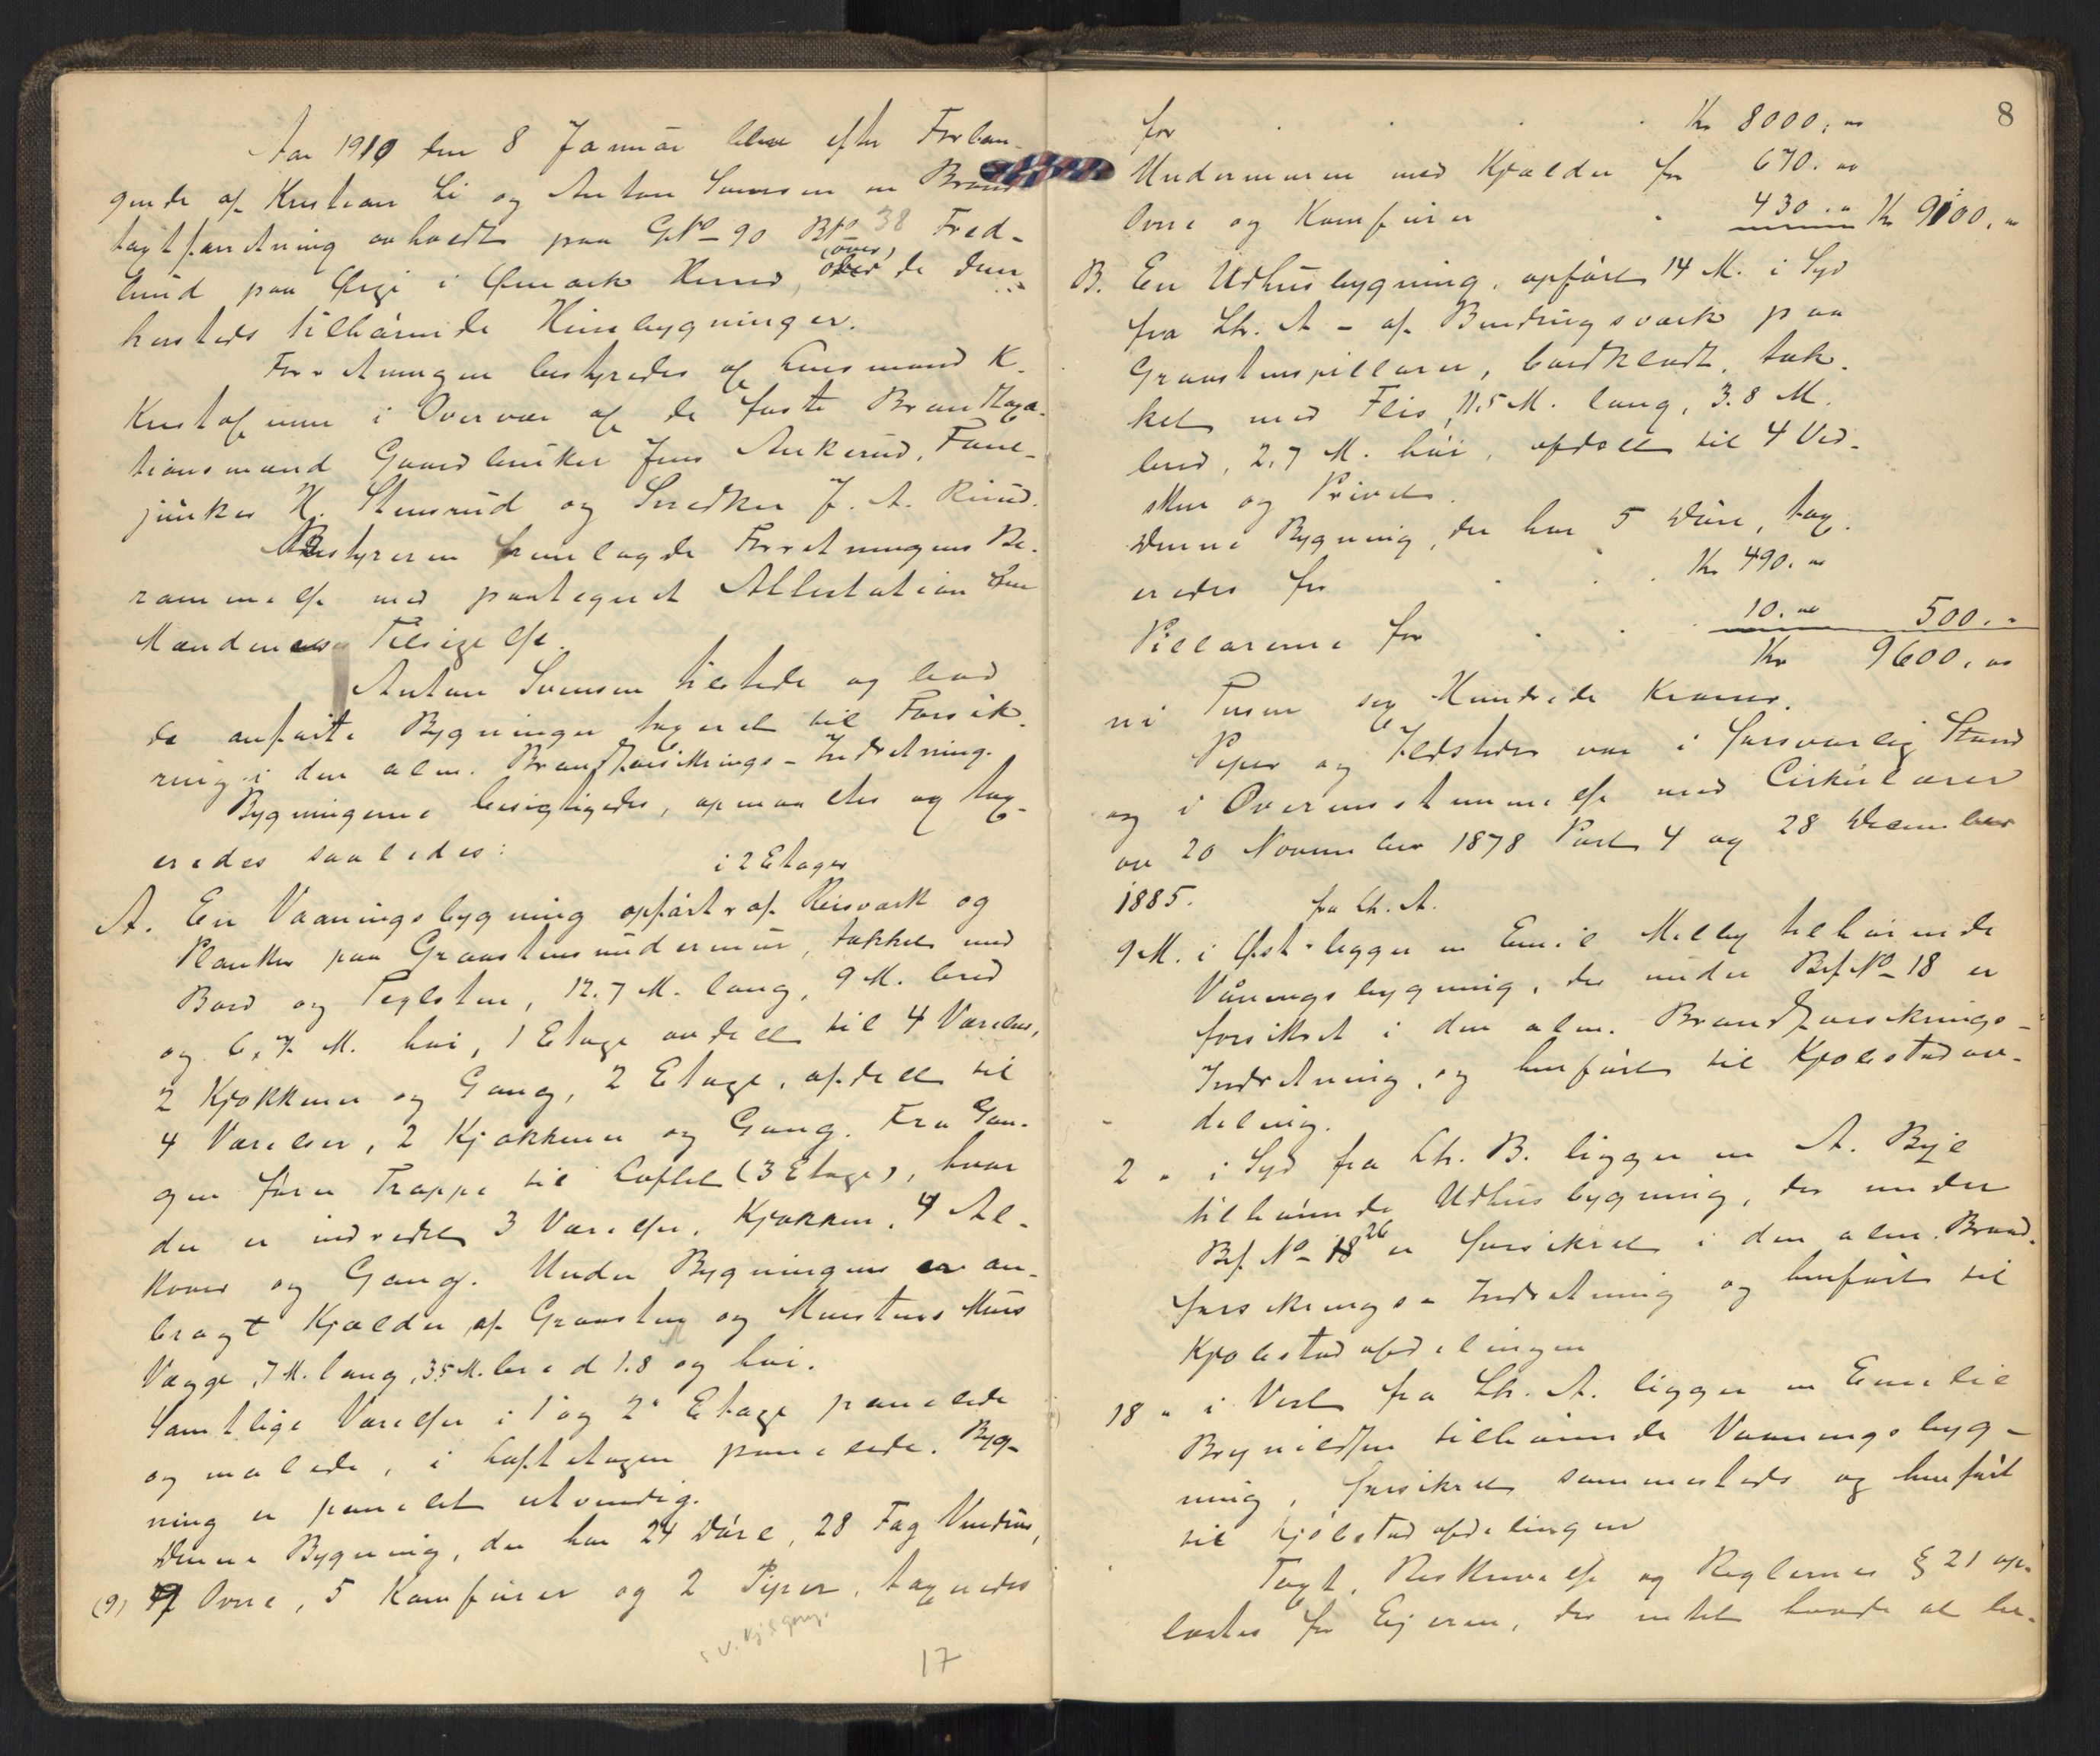 Aar 1910 den 8 Januar blev efter Forlan-
gende af Kristian Li og Anton Svensen en Brand
taxtforretning avholdt paa GNo 90 BNo 38 Fred-
lund paa Ørje i Ømark Herred, over (over) de dem
husteds tilhørende Husebygninger.
Forretningen bestyredes af Lensmand K.
Kristofersen i Overvær af de faste Brandtaxa-
tionsmænd Gaardbruker Jens Ankerud, Fane-
junker H. Stensrud og Snedker J. A. Riiud.
Bestyreren fremlagde Forretningens Be-
rammelse med paategnet Attestation om
Mændenes Tilsigelse.
Anton Svensen tilstede og lod
de anførte Bygninger taxeret til Forsik-
ring i den alm. Brandforsikrings-Indretning.
Bygningerne besigtigedes, opmaaltes og tax-
eredes saaledes:
i 2 Etager
A. En Vaaningsbygning opført af Reisværk og
Planker paa Graastensundermur, tækket med
Bord og Teglsten, 12.7 M. lang, 9 M. bred
og 6,7 M. høi, 1 Etage avdelt til 4 Værelser,
2 Kjøkkener og Gang, 2 Etage, afdelt til
4 Værelser, 2 Kjøkkener og Gang. Fra Gan-
gen fører Trappe til Loftet (3 Etage), hvor
der er indredet 3 Værelser, Kjøkken, 4 Al-
kover og Gang. Under Bygningen er an-
bragt Kjælder af Graasten og Murstens Mur
Vægge, 7 M. lang, 3.5 M. bred 1.8 og høi.
Samtlige Værelser i 1 og 2 Etage panelede
og malede, i Loftetagen panelede. Byg-
ning er panelet utvendig.
Denne Bygning, der har 24 Døre, 28 Fag Vinduer,
(9) 9 Ovne, 5 Komfurer og 2 Piper, taxeredes
17
8
for Kr 8000,00
Undermuren med Kjælder for 670.00
Ovne og Komfurer 430.00 Kr 9100,00
B. En Udhusbygning, opført 14 M. i Syd
fra Lit. A - af Bindingsværk paa
Graastenspillarer, bordklædt, tæk-
ket med Flis, 11,5 M. lang, 3.8 M.
bred, 2,7 M. høi, afdelt til 4 Ved-
skur og Privet.
Denne Bygning, der har 5 Døre, tax-
eredes for Kr 490.00
Pillarerne for 10.00 500.00
Kr 9600,00
ni Tusen sex Hundrede Kroner.
Piper og Ildsteder var i forsvarlig Stand
og i Overensstemmelse med Cirkulærer
av 20 November 1878 Post 4 og 28 December
1885.
fra Lit. A.
9 M. i Øst ligger en Emil Melby tilhørende
Våningsbygning, der under Brf. No 18 er
forsikret i den alm. Brandforsikrings-
Indretning, og henført til Kjøbstadav-
deling.
2 " i Syd fra Lit. B. ligger en A. Bøje
tilhørende Udhusbygning, der under
Brf. No 18 26 er forsikret i den alm. Brand-
forsikrings-Indretning og henført til
Kjøbstadafdelingen
18 " i Vest fra Lit. A. ligger en Emilie
Brynildsen tilhørende Vaaningsbyg-
ning, forsikret sammesteds og henført
til Kjøbstadafdelingen
Taxt, Beskrivelse og Reglernes § 21 op-
læstes for Eieren, der intet havde at be-